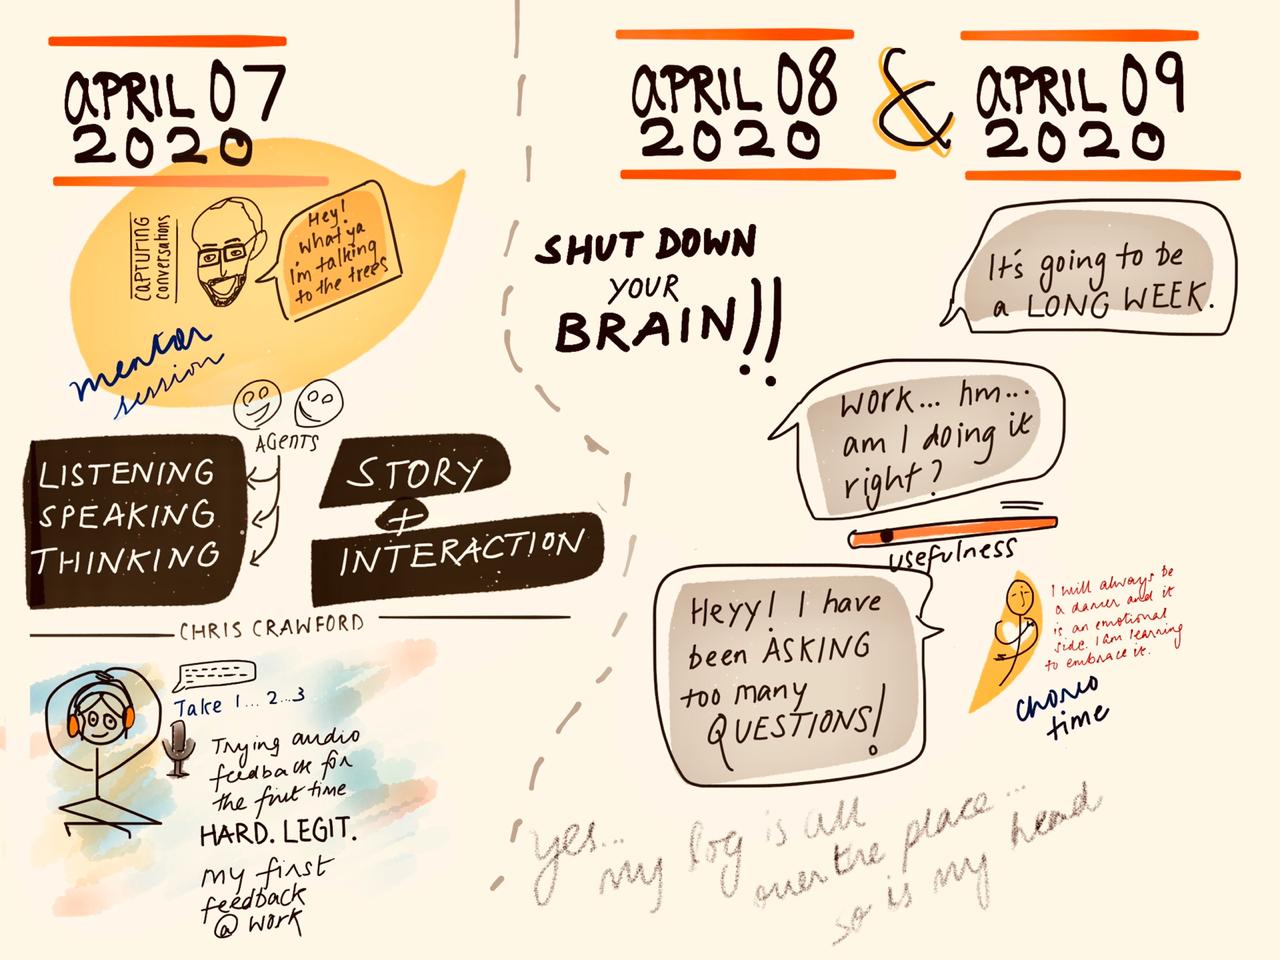 APRIL 07
2020
CAPTURING
conversations
Hey!
What ya
I'm talking
to the trees
mentor
session
AGENTS
LISTENING
SPEAKING
THINKING
STORY
+
INTERACTION
CHRIS CRAWFORD
Take 1... 2...3
Trying audio
feedback for
the first time
HARD. LEGIT.
my first
feedback
@ work
APRIL 08
2020
&
APRIL 09
2020
SHUT DOWN
YOUR
BRAIN!!
It's going to be
a LONG WEEK.
Work... hm...
am I doing it
right?
usefulness
Heyy! I have
been ASKING
too many
QUESTIONS!
I will always be
a dancer and it
is an emotional
side. I am learning
to embrace it.
choreo
time
yes...
my log is all
over the place...
so is my head